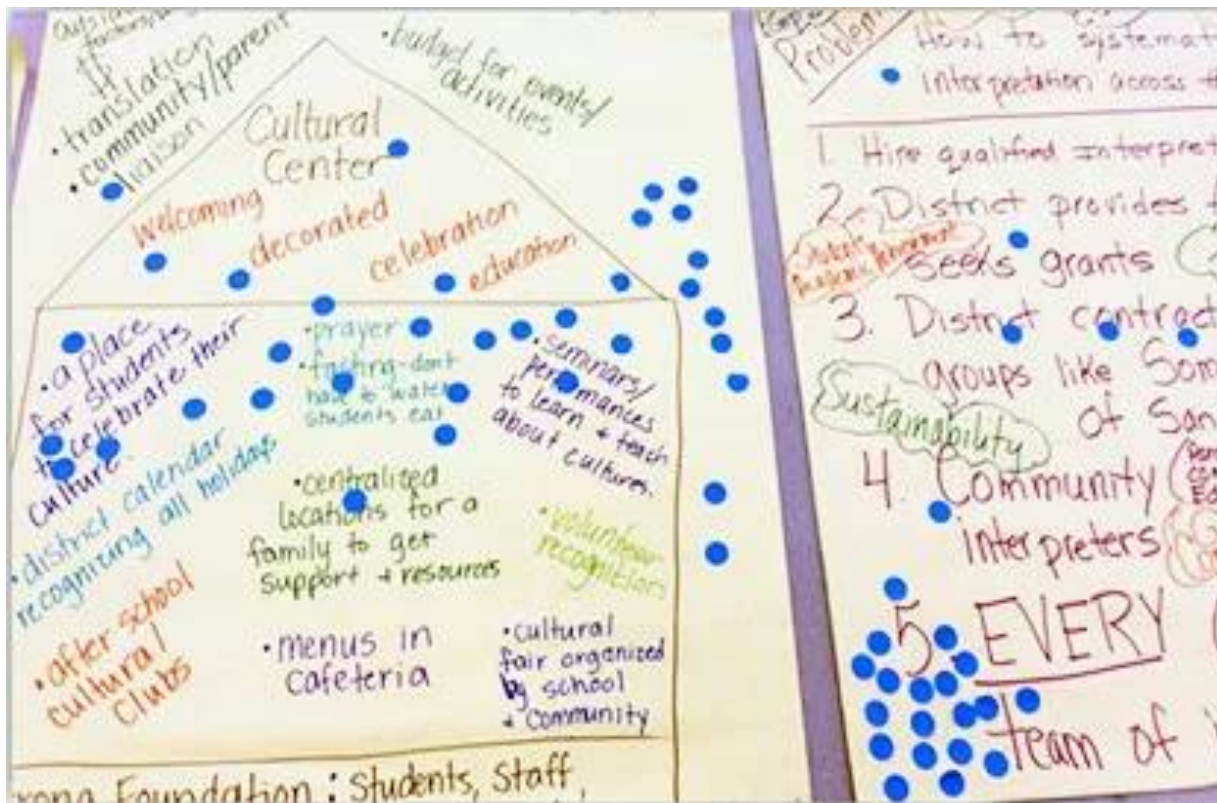 factors
translation
• community/parent
liaison
• budget for events/
activities
Cultural
Center
welcoming
decorated
celebration
education
• a place
for students
to celebrate their
culture.
• district calendar
recognizing all holidays
• after school
cultural
clubs
• prayer
• fasting-don't
have to watch
students eat
• centralized
locations for a
family to get
support + resources
• menus in
cafeteria
• seminars/
performances
to learn + teach
about cultures.
• volunteer
recognitions
• cultural
fair organized
by school
+ community
Foundation : Students, Staff,
Problem
How to systemat
interpretation across
1. Hire qualified Interpret
2. District provides
seeks grants
3. District contract
groups like Som
of San
Sustainability
4. Community
interpreters
5. EVERY
team of